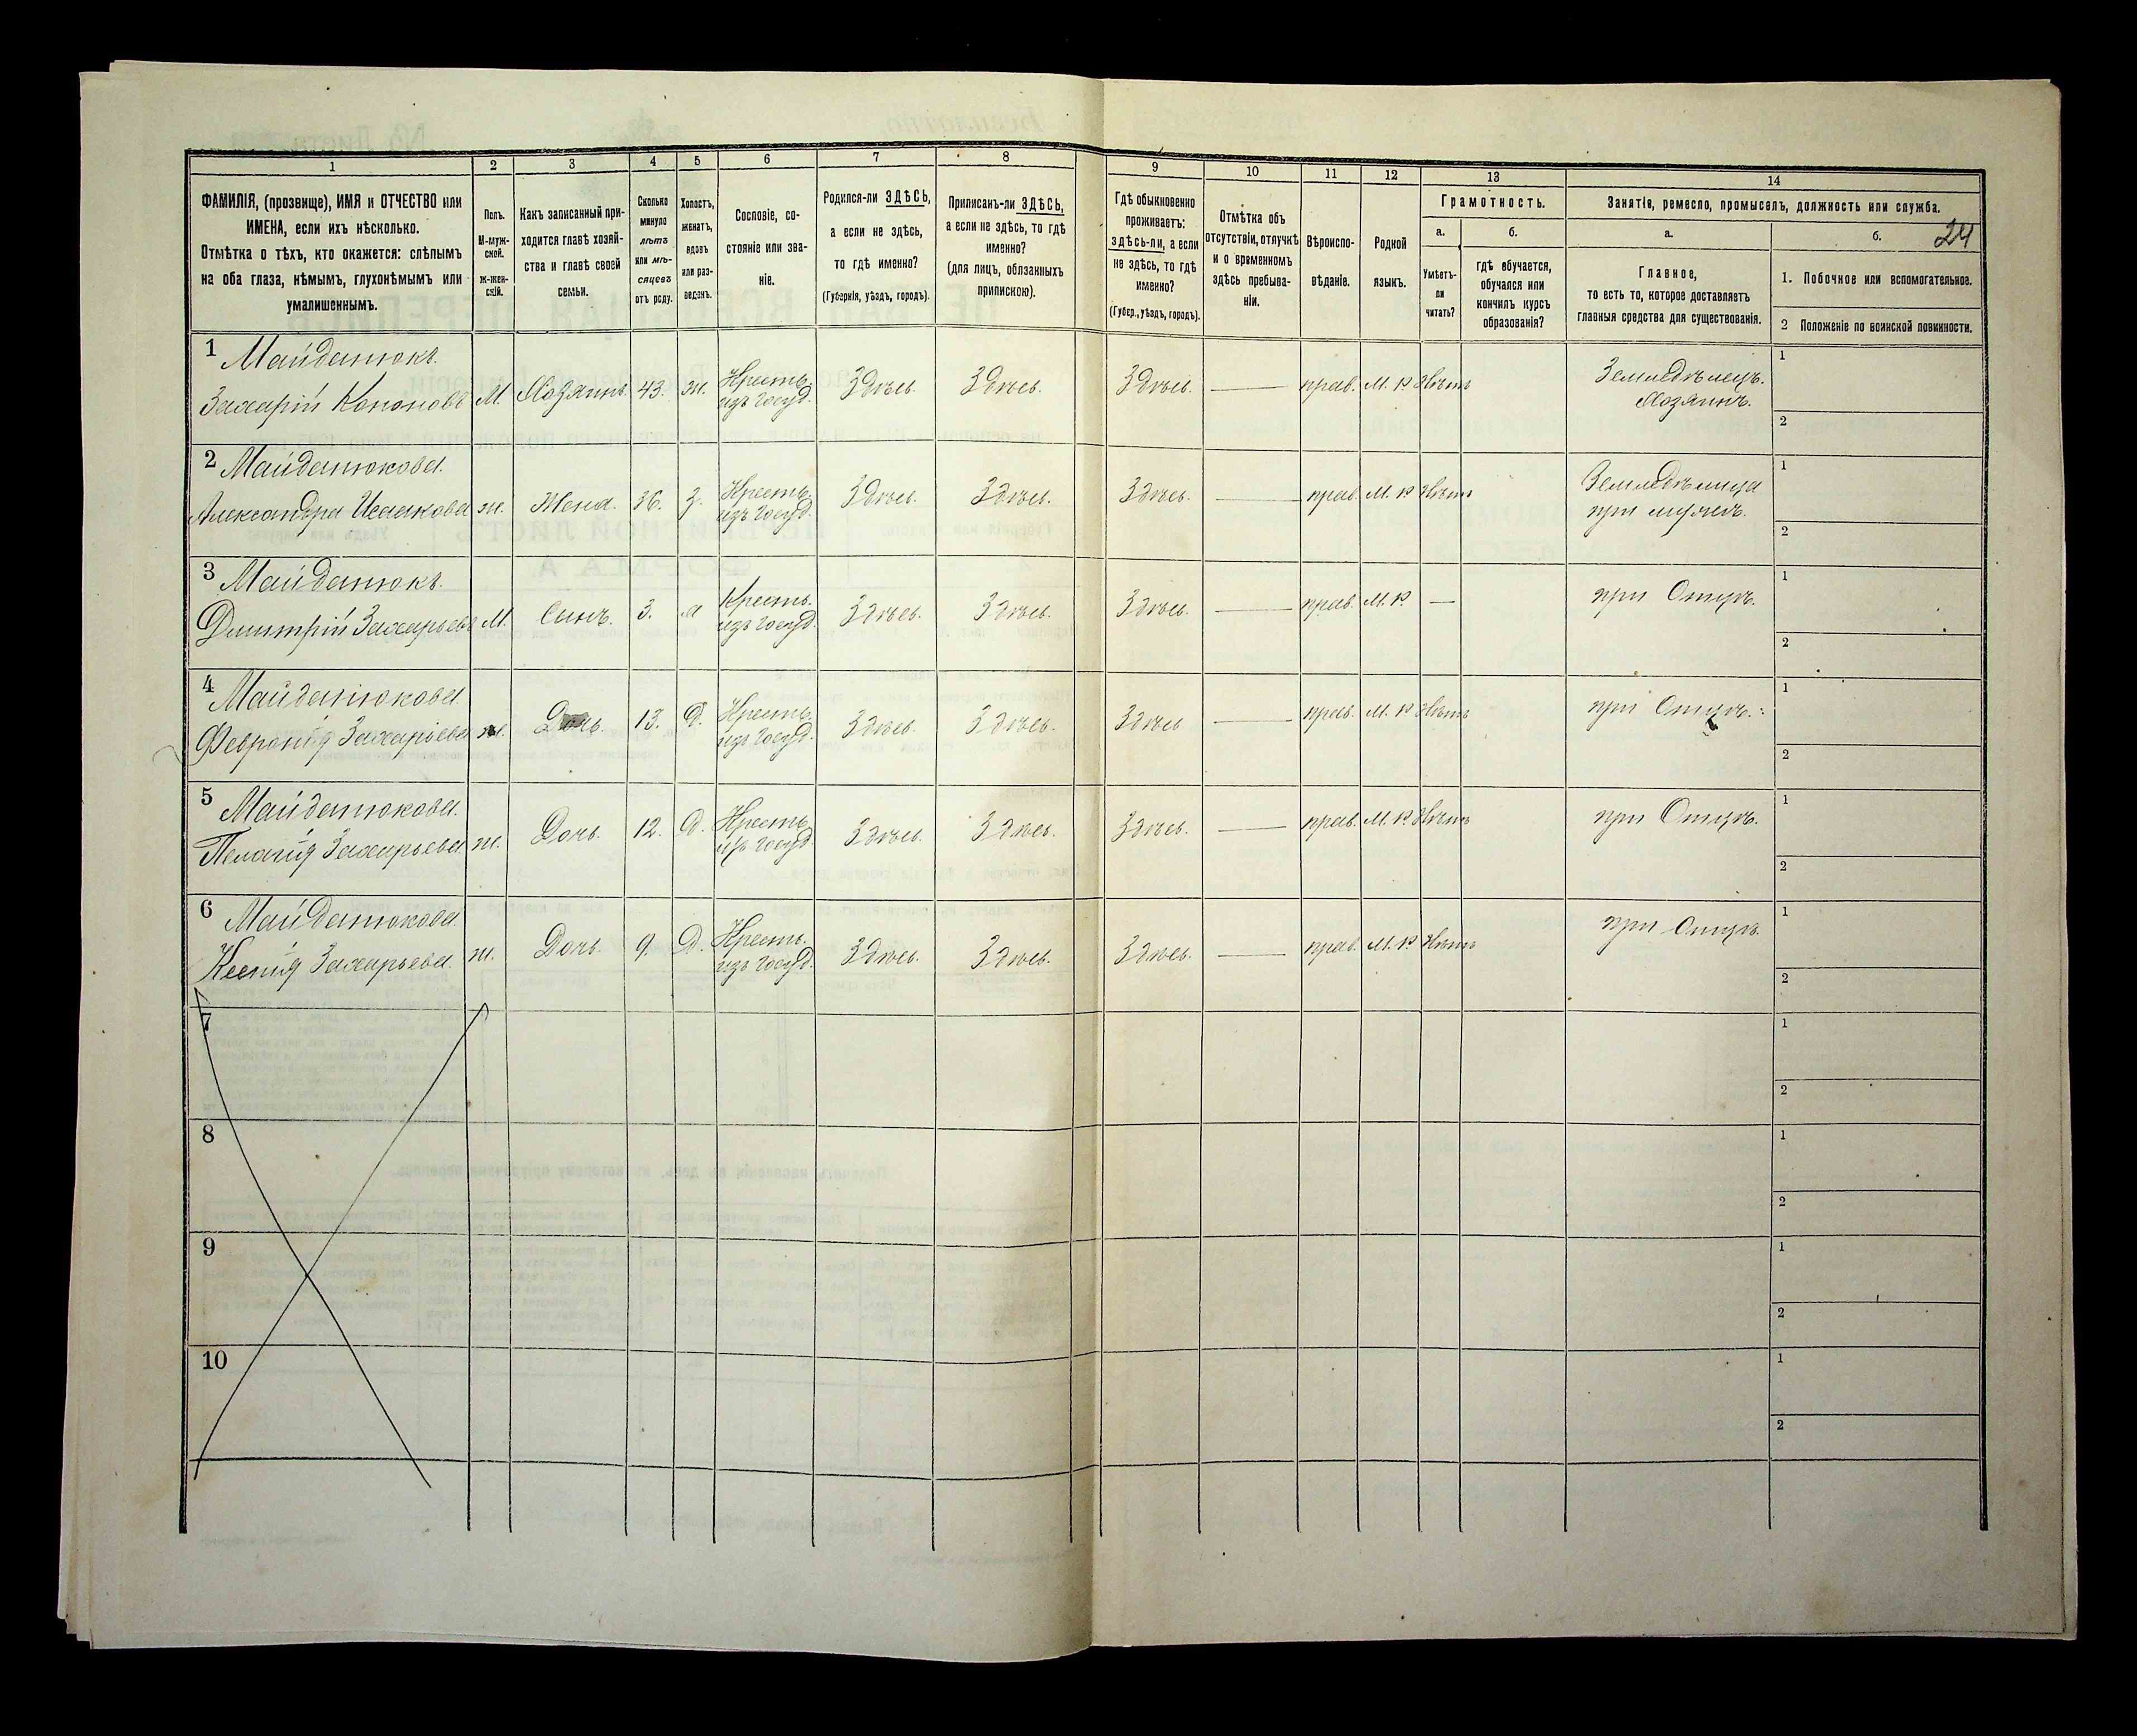 1 2 3 4 5 6 7 8 9 10 11 12 13 14
ФАМИЛІЯ, (прозвище), ИМЯ и ОТЧЕСТВО или
ИМЕНА, если ихъ нѣсколько.
Отмѣтка о тѣхъ, кто окажется: слѣпымъ
на оба глаза, нѣмымъ, глухонѣмымъ или
умалишеннымъ.
Полъ.
М-муж-
ской.
Ж-жен-
скій.
Какъ записанный при-
ходится главѣ хозяй-
ства и главѣ своей
семьи.
Сколько
минуло
лѣтъ
или мѣ-
сяцевъ
отъ роду.
Холостъ,
женатъ,
вдовъ
или раз-
веденъ.
Сословіе, со-
стояніе или зва-
ніе.
Родился-ли ЗДѢСЬ,
а если не здѣсь,
то гдѣ именно?
(Губернія, уѣздъ, городъ).
Приписанъ-ли ЗДѢСЬ,
а если не здѣсь, то гдѣ
именно?
(для лицъ, обязанныхъ
припискою).
Гдѣ обыкновенно
проживаетъ:
здѣсь-ли, а если
не здѣсь, то гдѣ
именно?
(Губер., уѣздъ, городъ).
Отмѣтка объ
отсутствіи, отлучкѣ
и о временномъ
здѣсь пребыва-
ніи.
Вѣроиспо-
вѣданіе.
Родной
языкъ.
Грамотность.
а.
Умѣетъ-
ли
читать?
б.
гдѣ обучается,
обучался или
кончилъ курсъ
образованія?
Занятіе, ремесло, промыселъ, должность или служба.
а.
Главное,
то есть то, которое доставляетъ
главныя средства для существованія.
б. 24
1. Побочное или вспомогательное.
2 Положеніе по воинской повинности.
1 Майданюкъ.
Захарій Кононовъ М. Хозяинъ. 43. ж. Кресть. изъ Госуд. Здѣсь. Здѣсь. Здѣсь. — прав. М. Р. Нѣтъ Земледѣлецъ. Хозяинъ. 1
2
2 Майданюкова.
Александра Исаакова ж. Жена. 36. З. Кресть. изъ Госуд. Здѣсь. Здѣсь. Здѣсь. — прав. М. Р. Нѣтъ Земледѣлица при мужѣ. 1
2
3 Майданюкъ.
Дмитрій Захарьевъ М. Сынъ. 3. Кресть. изъ Госуд. Здѣсь. Здѣсь. Здѣсь. — прав. М. Р. — при Отцѣ. 1
2
4 Майданюкова.
Февронія Захарьева ж. Дочь. 13. Д. Кресть. изъ Госуд. Здѣсь. Здѣсь. Здѣсь — прав. М. Р. Нѣтъ при Отцѣ. 1
2
5 Майданюкова.
Пелагія Захарьева ж. Дочь. 12. Д. Кресть. изъ Госуд. Здѣсь. Здѣсь. Здѣсь. — прав. М. Р. Нѣтъ при Отцѣ. 1
2
6 Майданюкова.
Ксенія Захарьева. ж. Дочь. 9. Д. Кресть. изъ Госуд. Здѣсь. Здѣсь. Здѣсь. — прав. М. Р. Нѣтъ при Отцѣ. 1
2
7 1
2
8 1
2
9 1
2
10 1
2